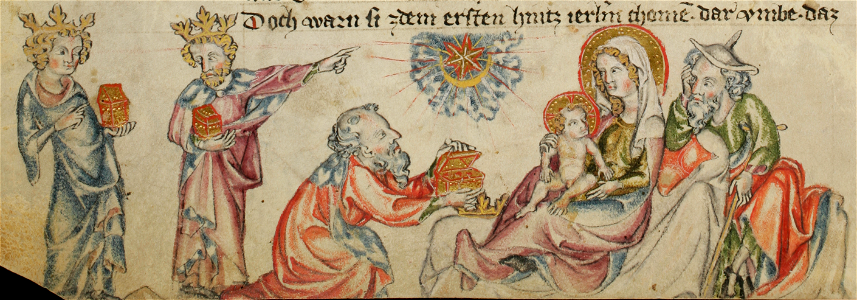 Doch warn si zdem ersten hintz ierlm̄ chomē· dar vmbe· daz